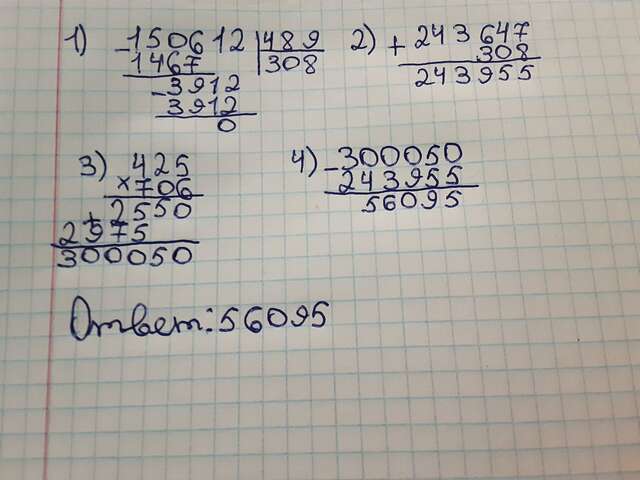 1) -150612 |489
1467 |308
-3912
3912
0
2) + 243647
308
243955
3) 425
×706
+2550
2975
300050
4) -300050
243955
56095
Ответ: 56095